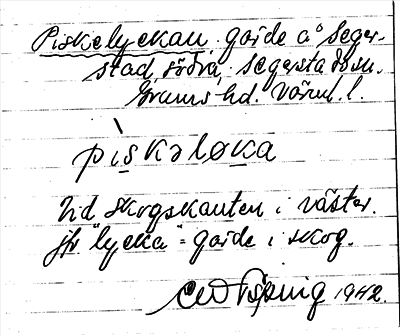 Piskelyckan. gärde å Seger-
stad, södra, Segerstad sn.
Grums hd. Värml. l.
pìskəløka
Vid skogskanten i väster.
jfr "lycka" = gärde i skog.
1942.